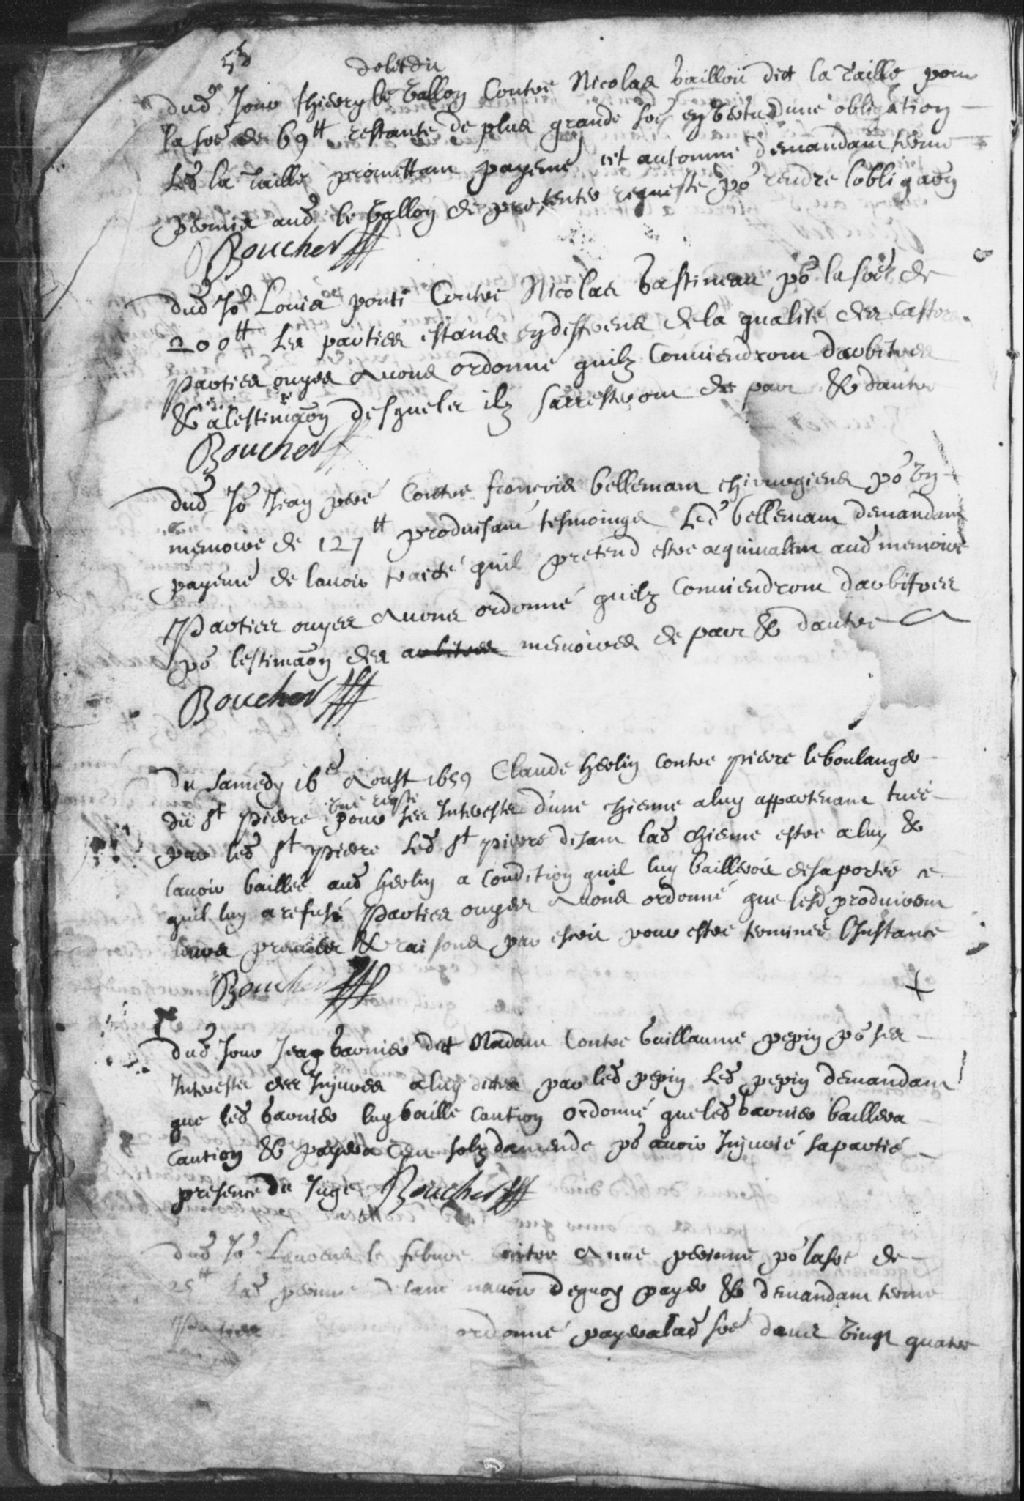 55
debtdu
dud Jour thierry le Vallon Contre Nicolas Gaillou dit la Taille pour
la soē de 69tt restante de plus grande soē en vertu dune obligation
Led la Taille promettant payeme cet automne demandant terme
permis aud le Vallon de presenter requeste po rendre lobligaōn
Boucher
dud Jo Louis ponti Contre Nicolas Gastineau po la soē de
200tt Les parties estans en different de la qualité des castors
Parties ouyes Avons ordonné quilz Conviendront darbitres
& a lestimaōn desquels ilz sarresteront de part & dautre
Boucher
dud Jo Jean peré Contre francois bellemant chirurgiens po un
memoire de 127tt produisant tesmoings Led bellemant demandant
payeme de lavoir traité quil pretend estre equivalent aud memoire
Parties ouyes Avons ordonné quilz Conviendront darbitres
po lestimaōn des arbitres memoires de part & dautre
Boucher
Du samedy 16e Aoust 1659 Claude herlin contre pierre le boulanger
dit st pierre pour ses Interests d'une chienne a luy appartenant tuée
par led st pierre Led st pierre disant lad chienne estre a luy &
lavoir baillée aud herlin a condition quil luy bailleroit de sa portée ce
quil luy a refusé Parties ouyes Avons ordonné que lesd produiront
leurs preuves & raisons par escrit pour estre terminée LInstance
Boucher
dud Jour Jean Garnier dit Nadain Contre Guillaume pepin po ses
Interests des Injures a luy dites par led pepin Led pepin demandant
que led Garnier luy baille caution ordonné que led Garnier baillera
caution & payera solz damende po avoir Injurié sa partie
presence du Juge Boucher
dud Jo Laurens le febure contre Anne perinne po la soē de
25tt Lad perinne disant navoir dequoy payer & demandant terme
Parties ordonné payera lad soē dans vingt quatre